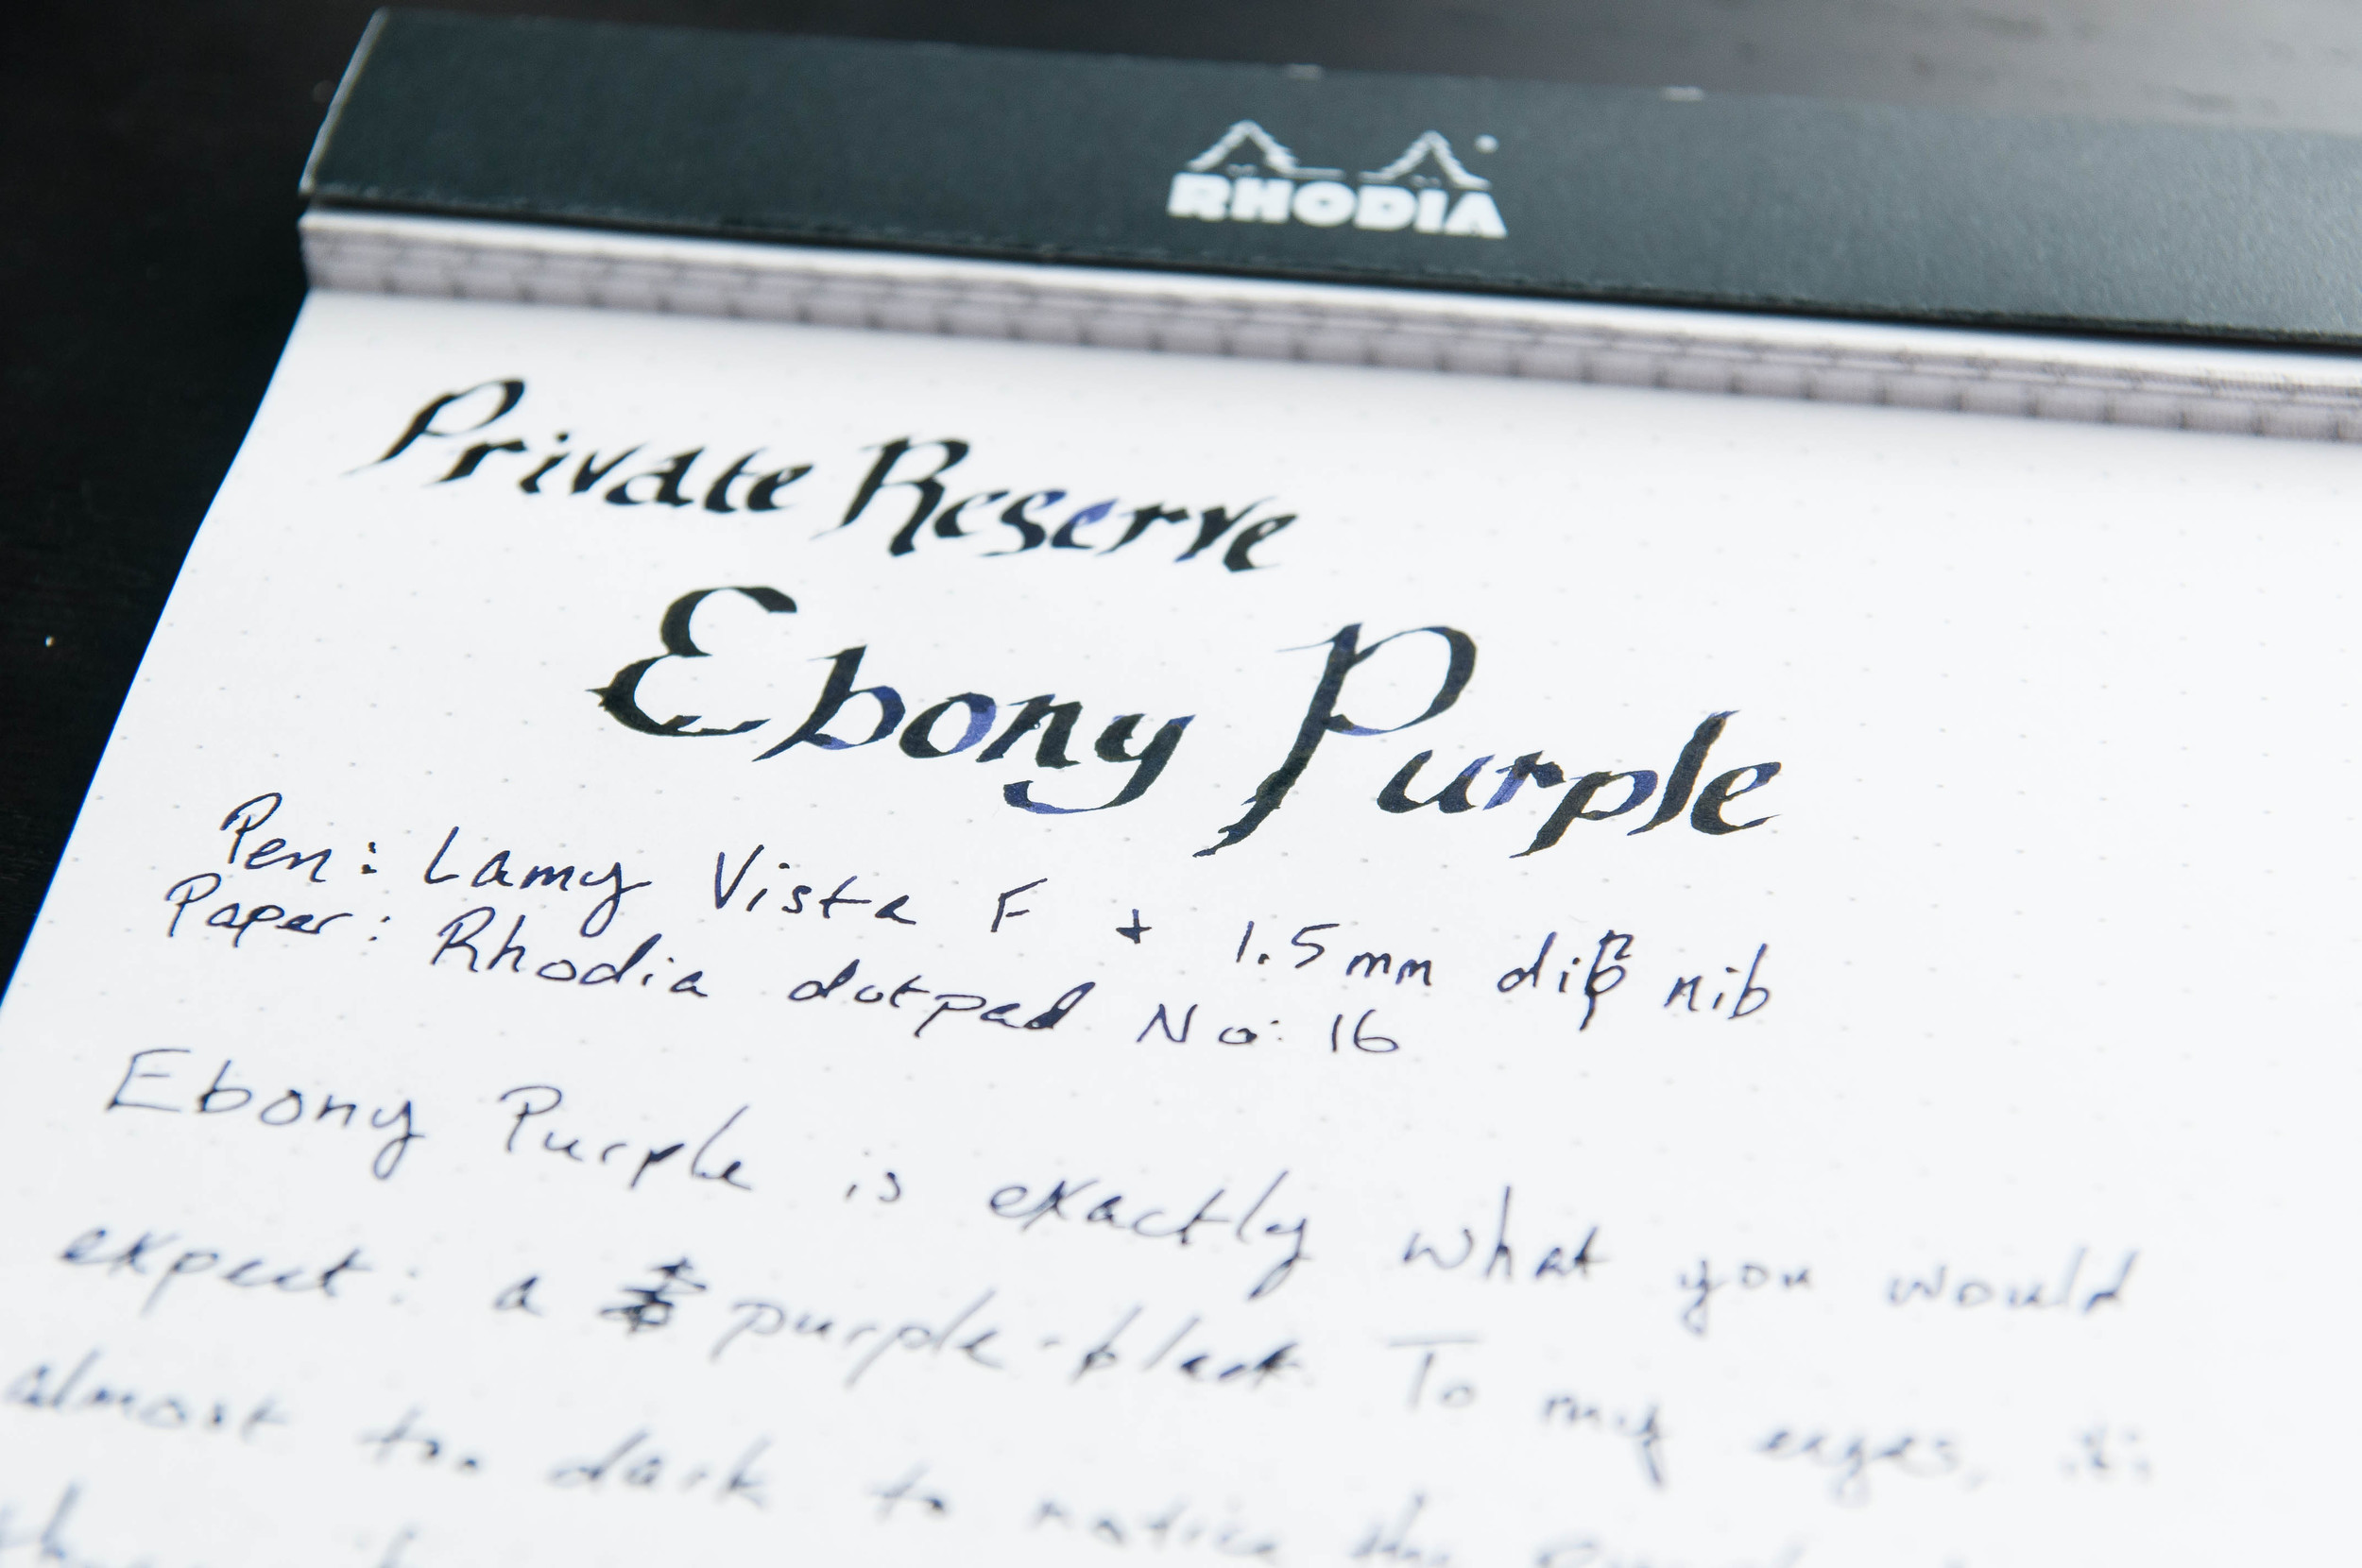 RHODIA
Private Reserve
Ebony Purple
Pen: Lamy Vista F + 1.5mm dip nib
Paper: Rhodia dotpad No: 16
Ebony Purple is exactly what you would
expect: a purple-black. To my eyes, it's
almost too dark to notice the